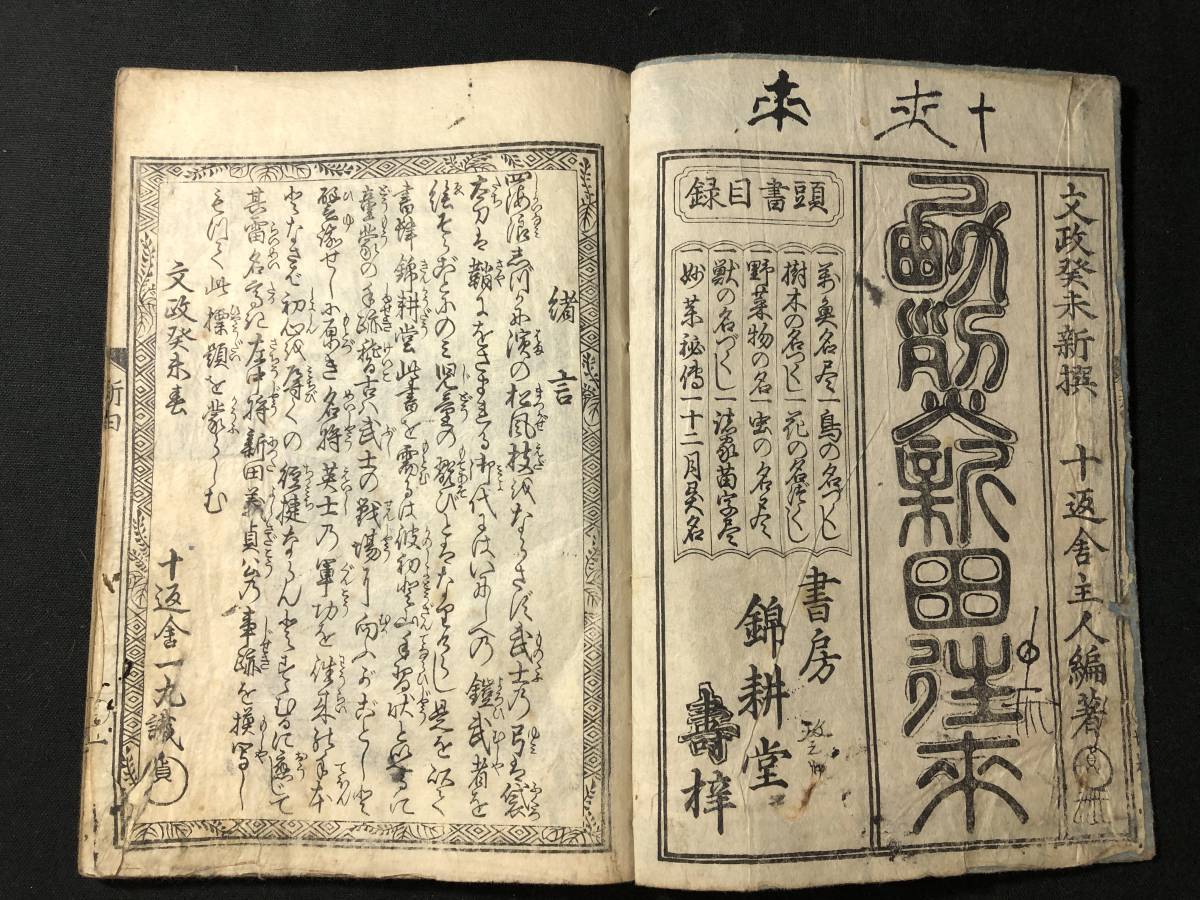 文政癸未新撰　十返舎主人編著
勲功新田往来
頭書目録
一万魚名尽一鳥の名づくし
一樹木の名づくし一花の名づくし
一野菜物の名一虫の名尽
一獣の名づくし一諸家苗字尽
一妙薬秘伝一十二月異名
書房
錦耕堂
壽梓
緒言
四海浪しづかに濱の松風枝をならさず武士乃弓は袋
太刀は鞘にをさまれる御代にはいにしへの鎧武者を
絵そらごとの三児童の翫びとはなりけらし是を以て
書肆錦耕堂此書を需るは彼初登山手習状と等しく
童蒙の手跡稽古ハ武士の戦場に向ふがごとしと
譬喩せしに原き名将英士乃軍功を往来の手本
となさば初心を導くの捷径ならんとすすむるに應じて
其雷名高き左中将新田義貞公の事跡を摸写し
もつて此標題を蒙らしむ
文政癸未春
十返舎一九識
新田